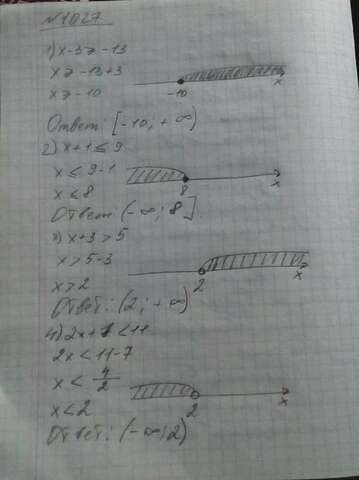 №1027
1) x-3 ≥ -13
x ≥ -13+3
x ≥ -10
-10 x
Ответ: [-10; +∞)
2) x+1 ≤ 9
x ≤ 9-1
x ≤ 8
8 x
Ответ: (-∞; 8]
3) x+3 > 5
x > 5-3
x > 2
2 x
Ответ: (2; +∞)
4) 2x+7 < 11
2x < 11-7
x < 4/2
x < 2
2 x
Ответ: (-∞; 2)